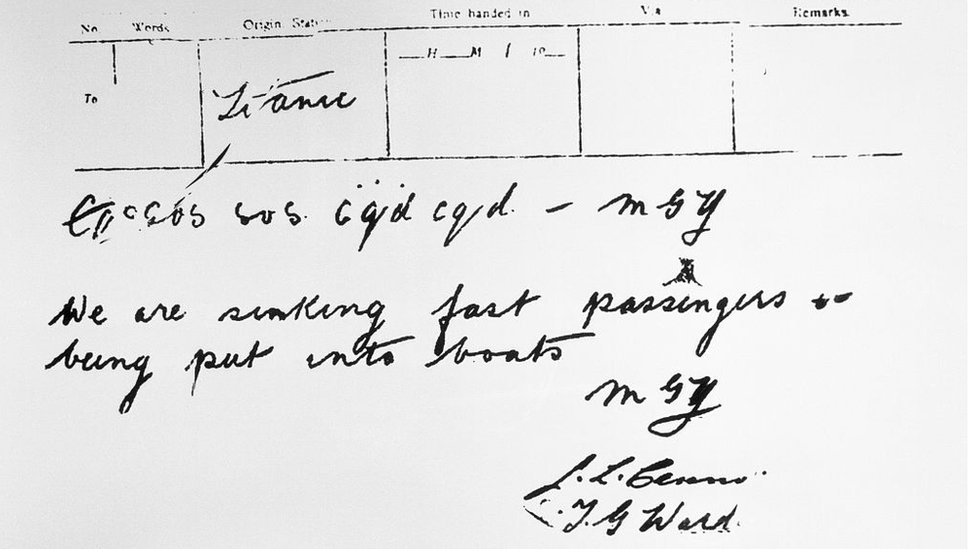 No. Words. Origin Station Time handed in Via Remarks.
To Titanic H M / 10
SOS SOS. cqd cqd. - MGY
We are sinking fast passengers
being put into boats
MGY
T G Ward.